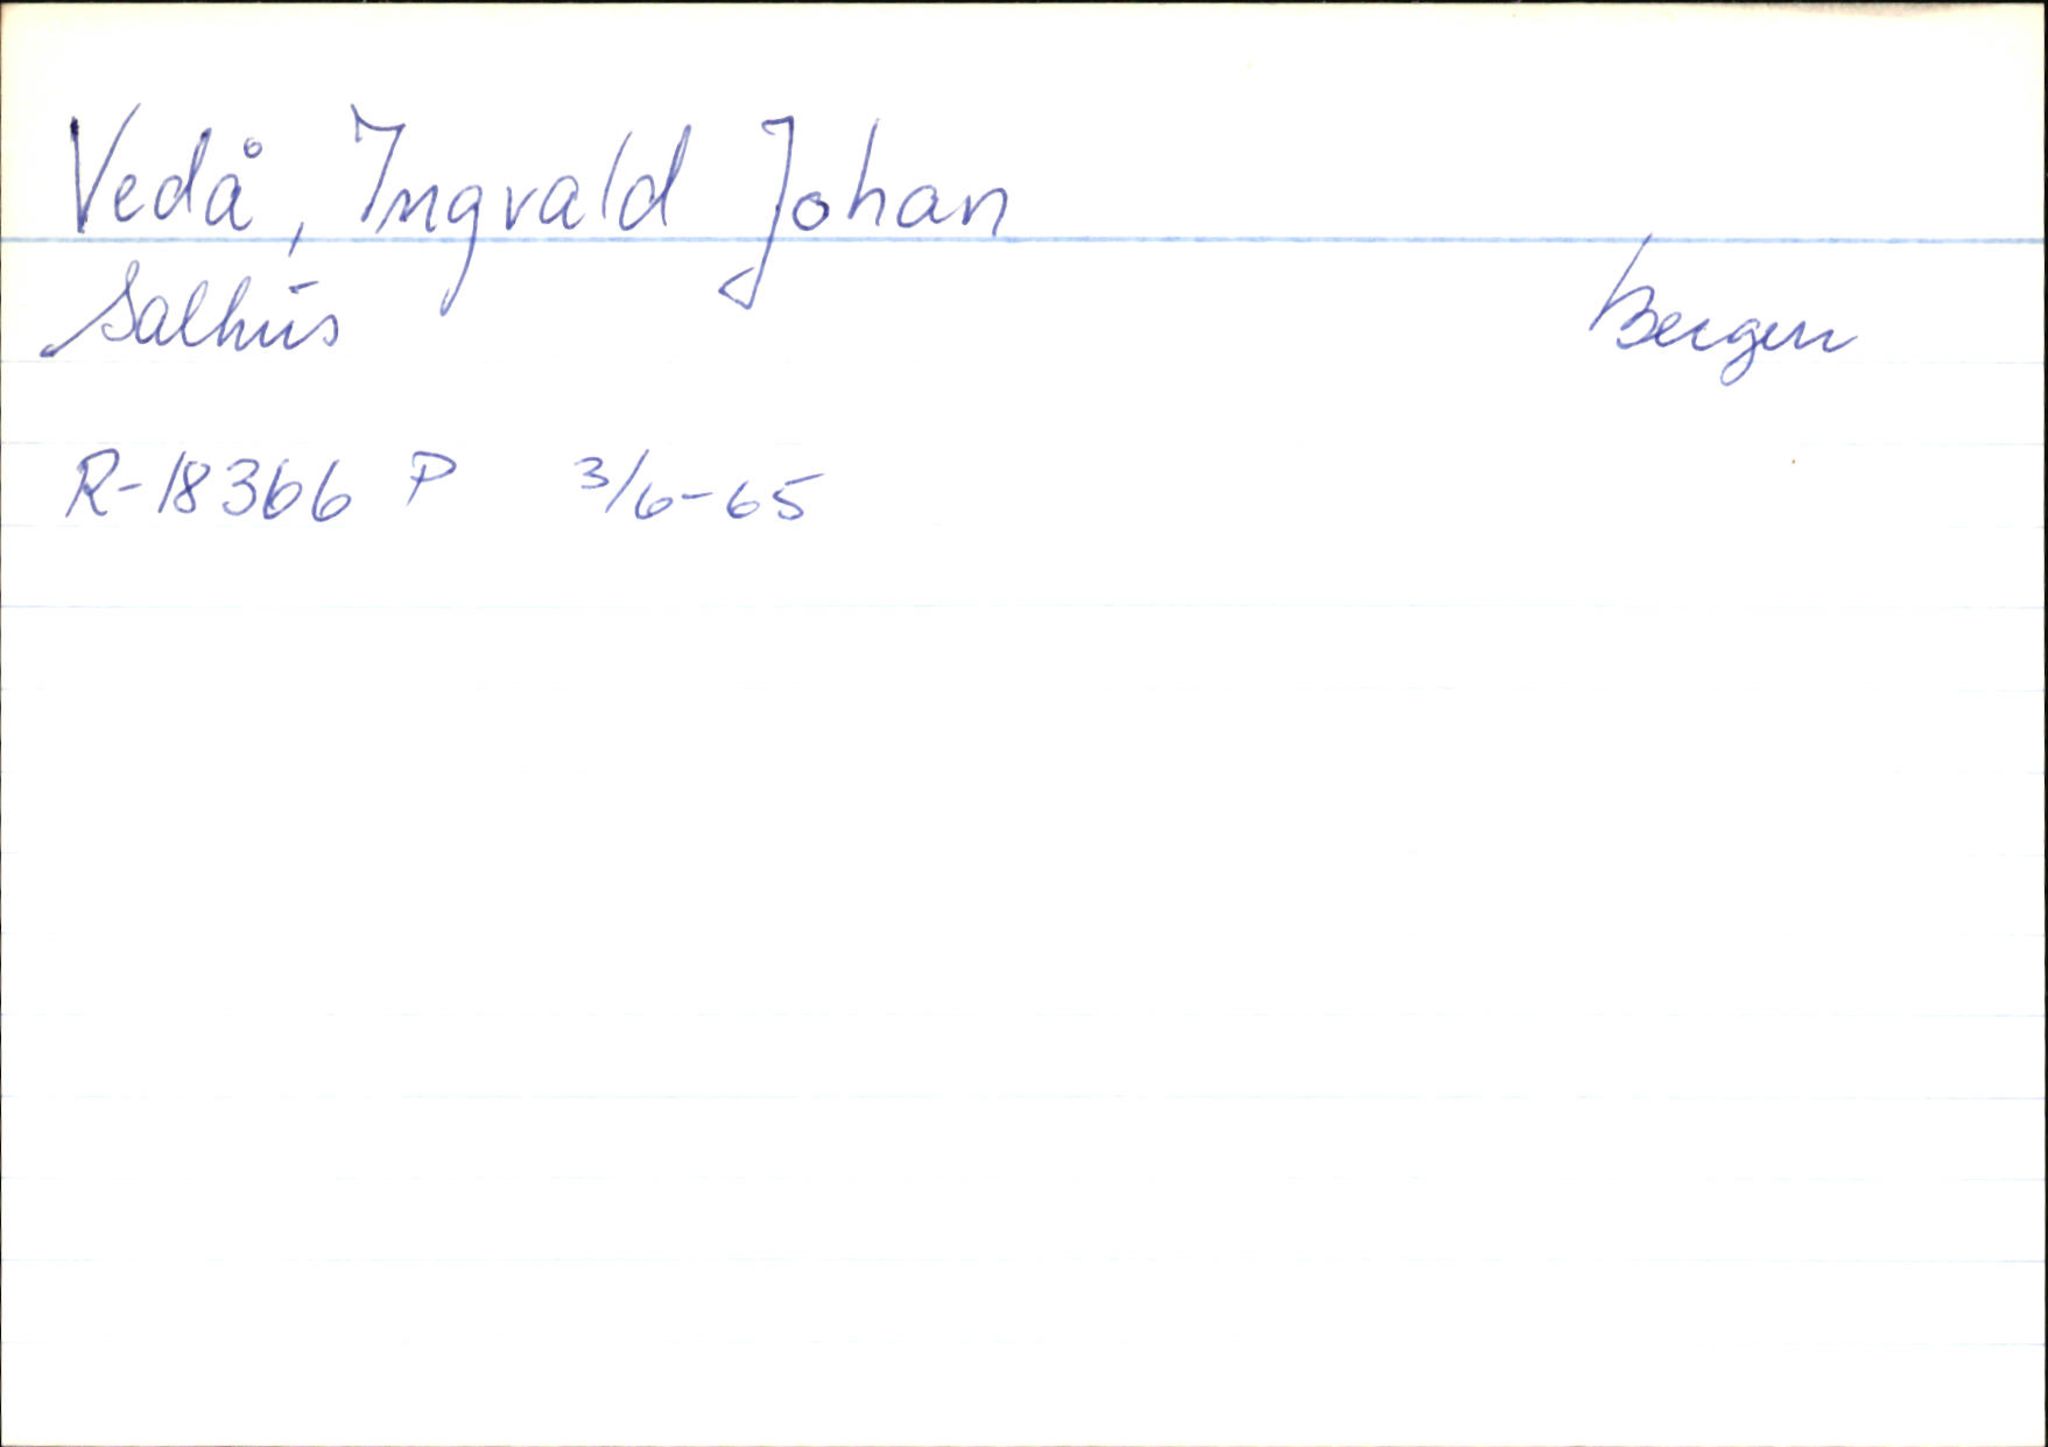 Vedå, Ingvald Johan
Salhus Bergen
R-18366 P 3/6-65